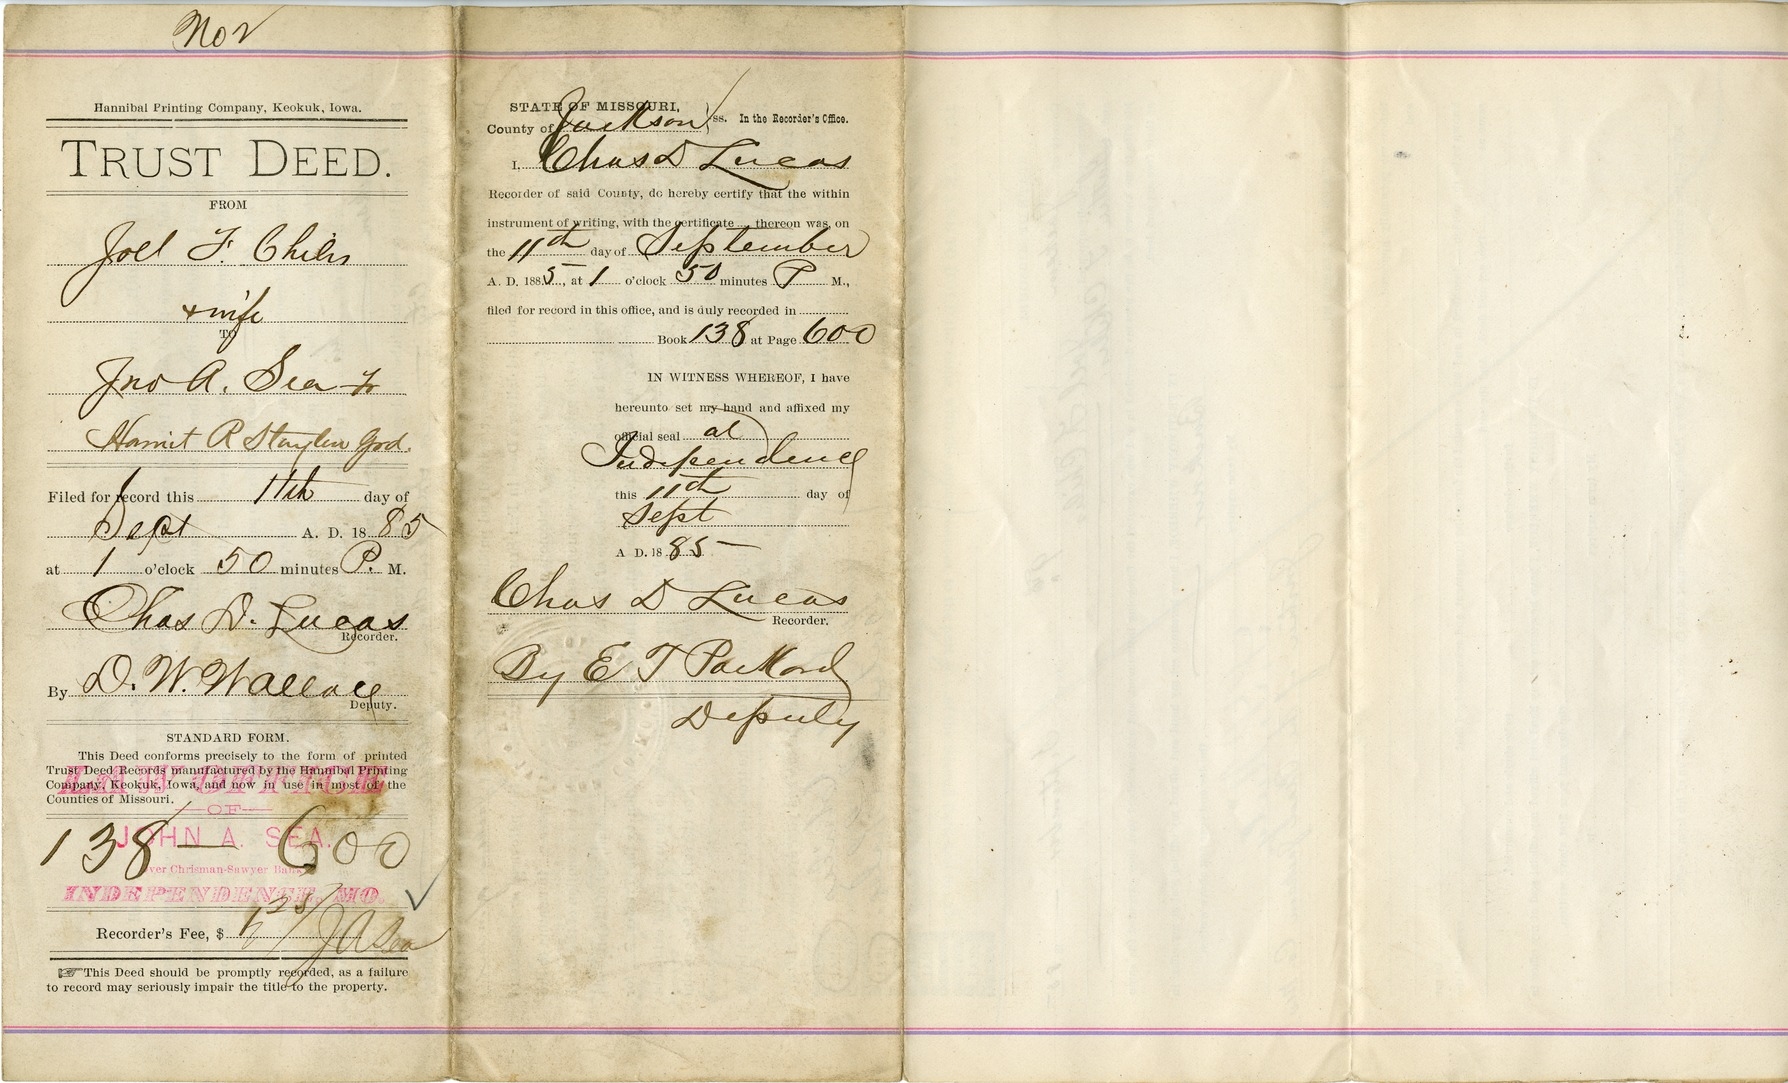 No 2
Hannibal Printing Company, Keokuk, Iowa.
TRUST DEED.
FROM
Joel F. Chiles
& wife
TO
Jno A. Sea Tr
R Grd.
Filed for record this 11th day of
Sept A. D. 1885
at 1 o'clock 50 minutes P. M.
Chas D. Lucas
Recorder.
By D. W. Wallace
Deputy.
STANDARD FORM.
This Deed conforms precisely to the form of printed
Trust Deed Records manufactured by the Hannibal Printing
Company, Keokuk, Iowa, and now in use in most of the
Counties of Missouri.
LAW OFFICE
OF
JOHN A. SEA.
138 — 600
Over Chrisman-Sawyer Bank
INDEPENDENCE, MO.
Recorder's Fee, $ J A Sea
This Deed should be promptly recorded, as a failure
to record may seriously impair the title to the property.
STATE OF MISSOURI,
County of Jackson ss. In the Recorder's Office.
I, Chas D Lucas
Recorder of said County, do hereby certify that the within
instrument of writing, with the certificate thereon was, on
the 11th day of September
A. D. 1885, at 1 o'clock 50 minutes P M.,
filed for record in this office, and is duly recorded in
Book 138 at Page 600
IN WITNESS WHEREOF, I have
hereunto set my hand and affixed my
official seal at
Independence
this 11th day of
Sept
A D. 1885
Chas D Lucas
Recorder.
By E T Packard
Deputy